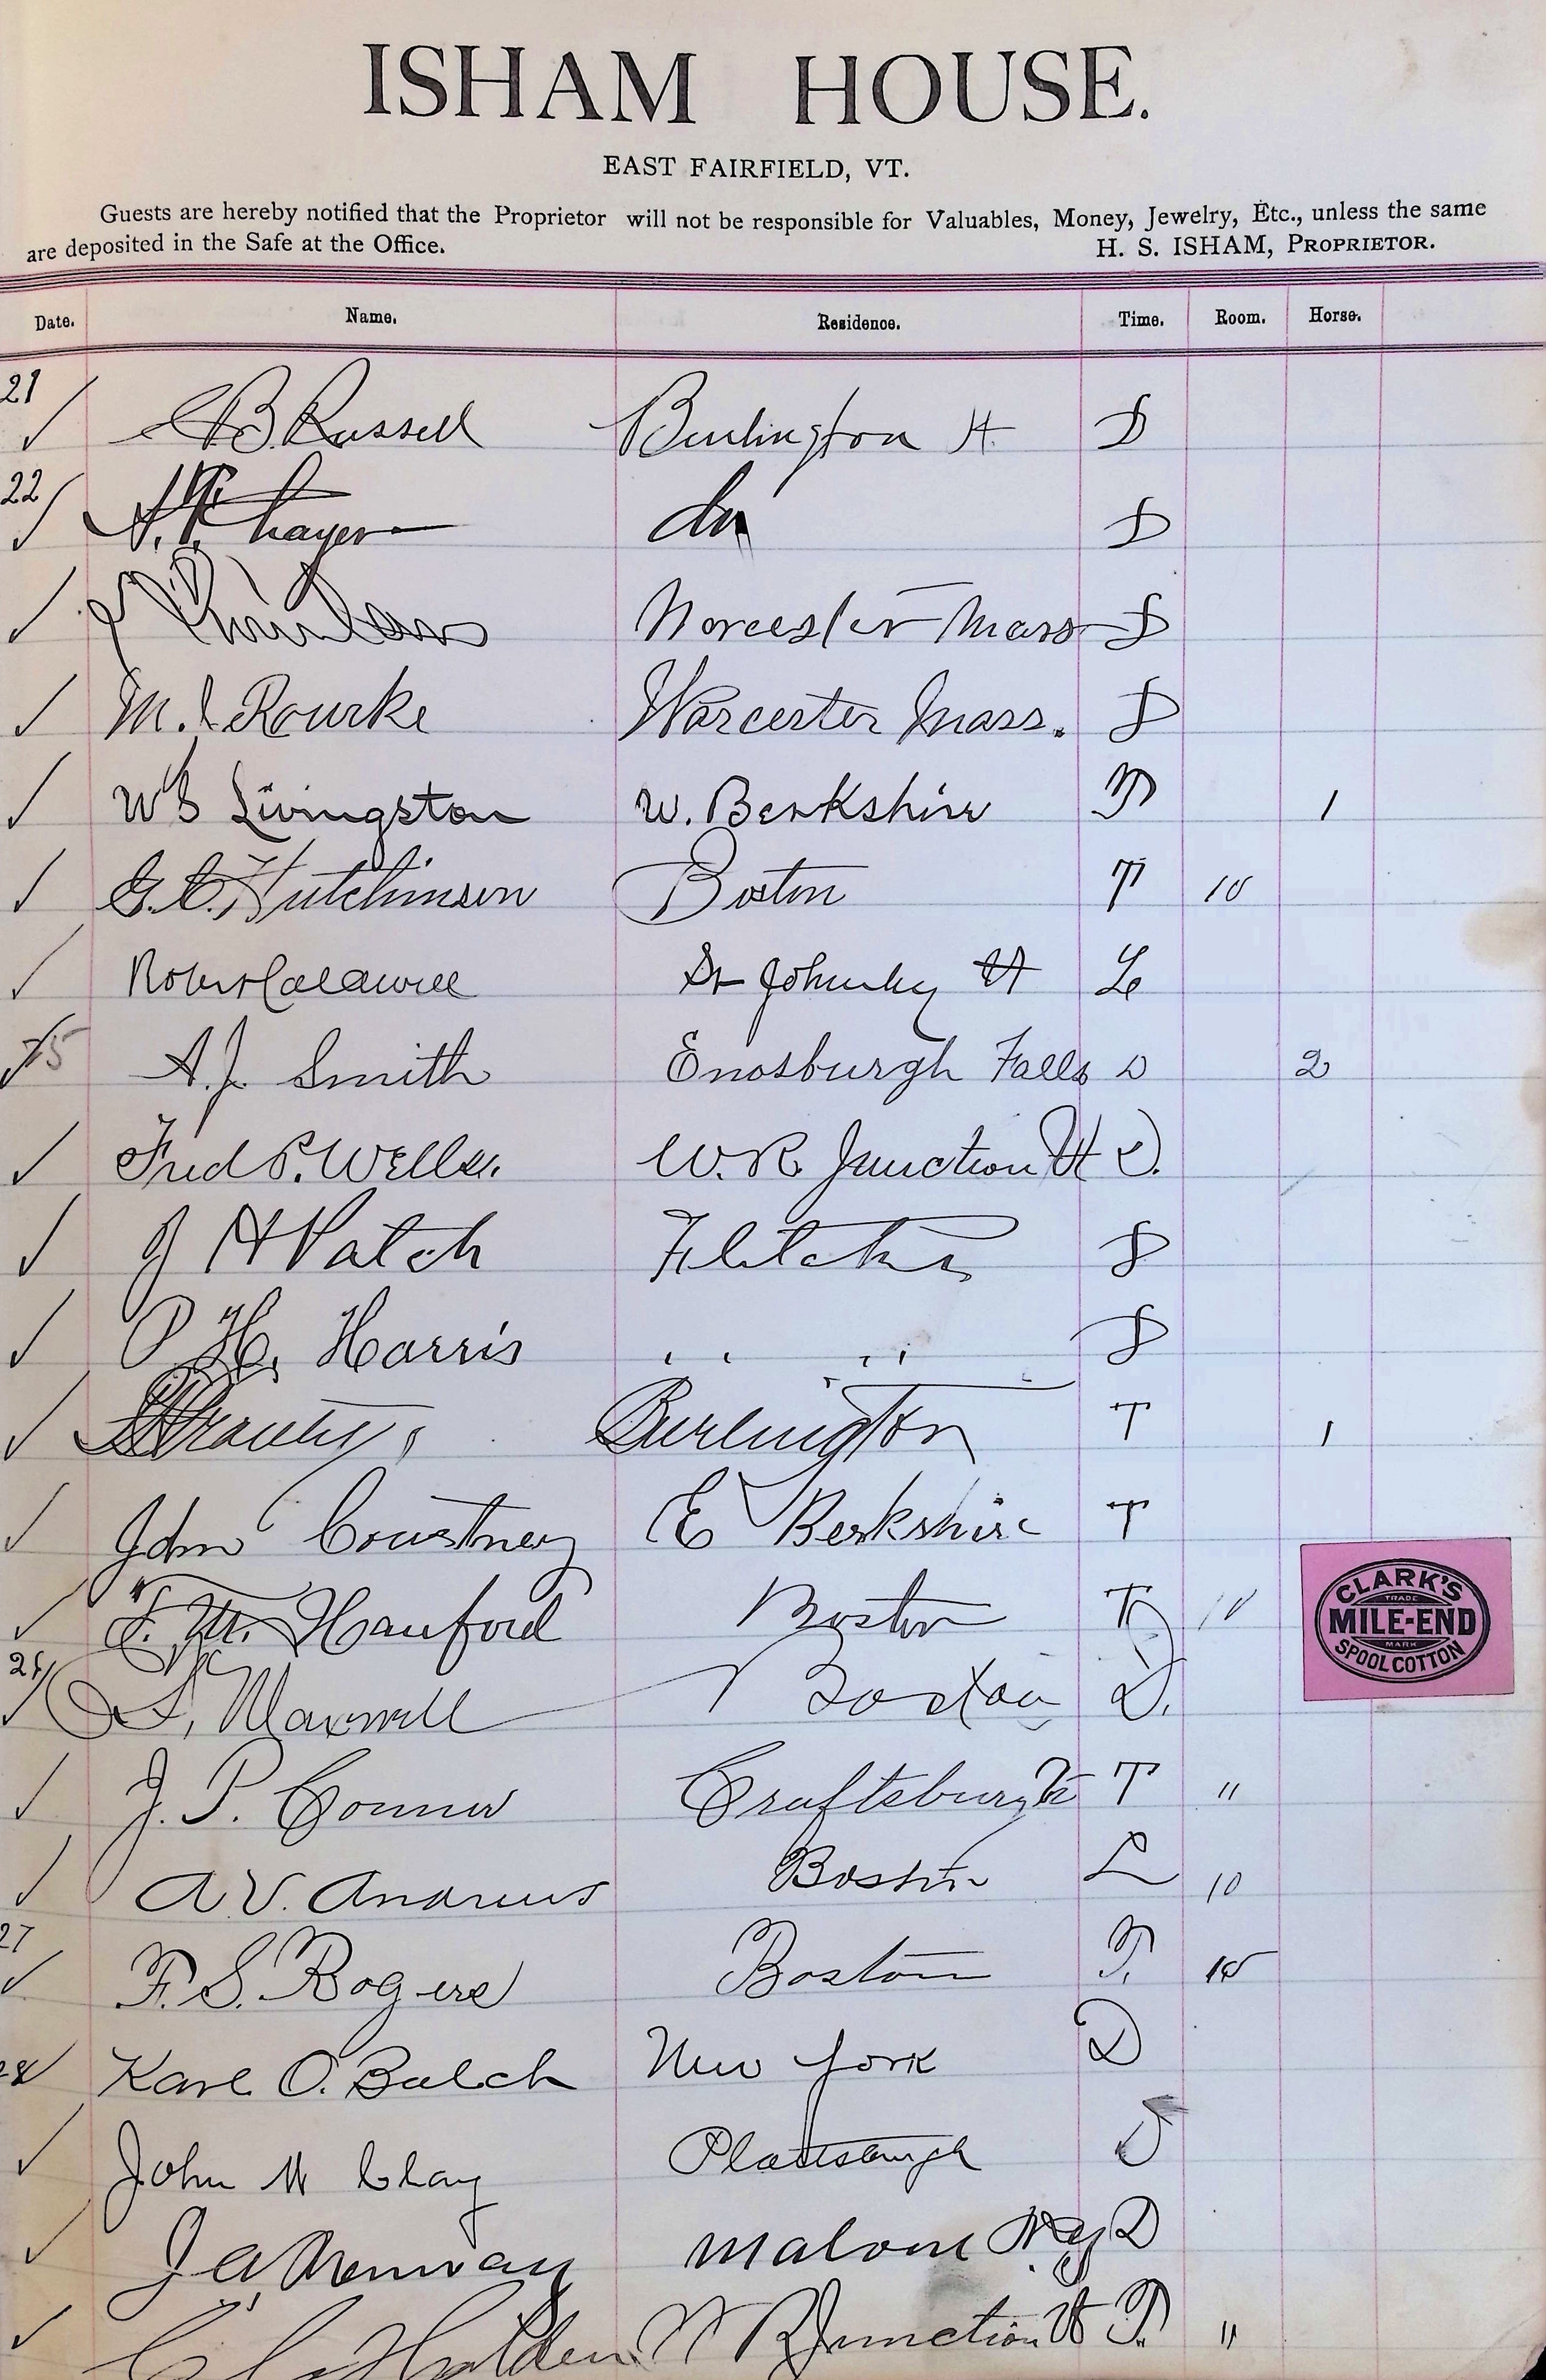 ISHAM HOUSE.
EAST FAIRFIELD, VT.
Guests are hereby notified that the Proprietor will not be responsible for Valuables, Money, Jewelry, Etc., unless the same
are deposited in the Safe at the Office. H. S. ISHAM, PROPRIETOR.
Date. Name. Residence. Time. Room. Horse.
21 B Russell Burlington D
22 Thayer do D
Worcester Mass D
M. J. Rourke Worcester Mass. D
W S Livingston W. Berkshire T 1
G. C. Hutchinson Boston T 10
Robert Caldwell St Johnsbury Vt L
25 A. J. Smith Enosburgh Falls D 2
Fred P. Wells. W. R. Junction Vt D.
J H Patch Fletcher D
P H. Harris " " D
Burlington T 1
John Courtney E Berkshire T
F. M. Hanford Boston T 10
S. Maxwell Boston D.
J. P. Conner Craftsbury Vt T "
A V. Andrews Boston L 10
27 F. S. Rogers Boston T. 10
28 Karl O. Balch New York D
John W Clay Plattsburgh D
J. A. Malone N.Y. D
Holden W R Junction Vt T. "
CLARK'S
TRADE
MILE-END
MARK
SPOOL COTTON